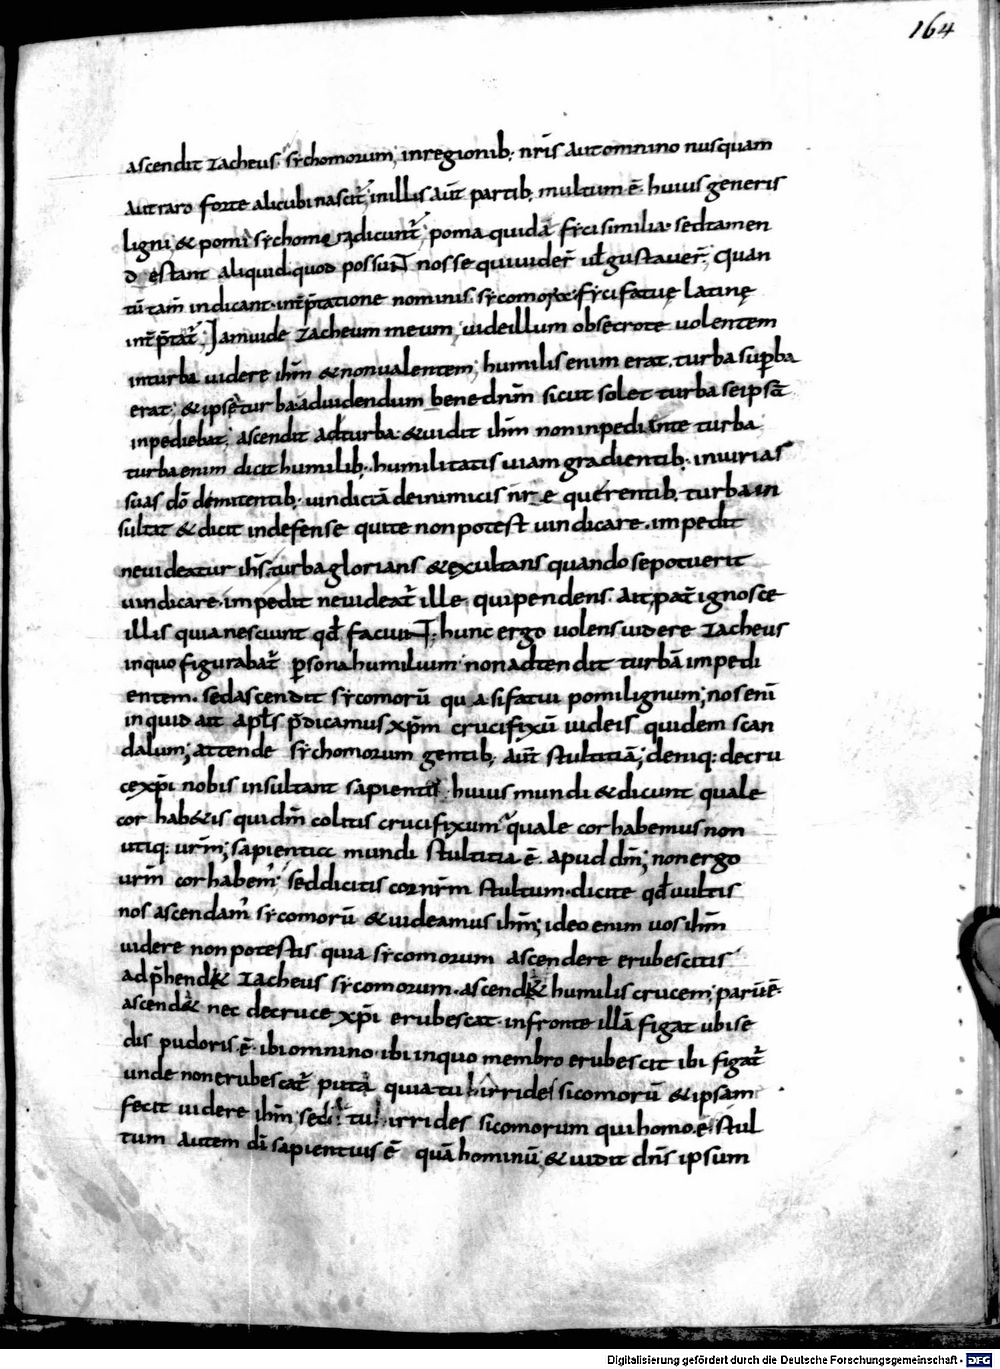 164
ascendit zacheus; sychomorum; inregionib; nr̄is aut omnino nusquam
aut raro forte alicubi nascit᷒; inillis aut̄ partib; multum ē huius generis
ligni, & pomi sychomę radicunt᷒; poma quidā fyci similia. sed tamen
d estant aliquid quod possunt nosse qui uider̄ ul̄ gustauer̄; quan
tū tam̄ indicant. int̄p̄tatione nominis. sycomorę fyci fatuę latinę
int̄p̄tat᷒; Iam uide zacheum meum; uide illum obsecro te uolentem
inturba uidere ihm̄ & nonualentem; humilis enim erat. turba sup̄ba
erat; & ipsę turba ad uidendum bene dnm̄ sicut solet turba seipsā
inpediebat; ascendit ad turba. & uidit ihm̄ non inpediente turba;
turba enim dicit humilib; humilitatis uiam gradientib; iniurias
suas dō demitentib; uindictā deinimicis nr̄ e querentib; turba in
sultat & dicit indefense qui te non potest uindicare. impedit
ne uideatur ihs̄; turba glorians & exultans quando se potuerit
uindicare. impedit ne uideat᷒ ille qui pendens ait; pat̄ ignosce
illis quia nesciunt qd̄ faciunt; hunc ergo uolens uidere zacheus
inquo figurabat᷒ p̄sona humilium non adtendit turbā impedi
entem. sed ascendit sycomorū quasi fatui pomi lignum; nos eni
inquid ait apl̄s p̄dicamus xp̄m crucifixū uideis quidem scan
dalum; attende sychomorum gentib; aut̄ stultitiā; deniq: decru
ce xp̄i nobis insultant sapientes huius mundi & dicunt quale
cor hab&is qui dm̄ colitis crucifixum quale cor habemus non
utiq: ur̄m; sapientia mundi stultitia ē apud dm̄; non ergo
ur̄m cor habem᷒; sed dicitis cor nr̄m stultum. dicite qd̄ uultis
nos ascendam᷒ sycomorū & uideamus ihm̄; ideo enim uos ihm̄
uidere non potestis quia sycomorum ascendere erubescitis
adp̄hend& zacheus sycomorum. ascend& humilis crucem; parū ē
ascend& nec decruce xp̄i erubescat. infronte illā figat ubi se
dis pudoris ē. ibi omnino. ibi in quo membro erubescit ibi figat᷒
unde non erubescat᷒ puta quia tu irrides sicomorū & ipsam
fecit uidere ihm̄; sed tu irrides sicomorum qui homo ē; stul
tum autem dī sapientius ē quā hominū, & uidit dns̄ ipsum
Digitalisierung gefördert durch die Deutsche Forschungsgemeinschaft - DFG